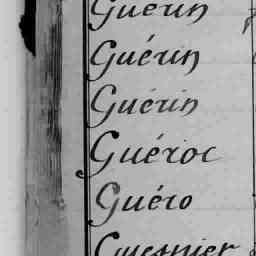 Guérin
Guérin
Guérin
Guéroc
Guéro
Guesnier